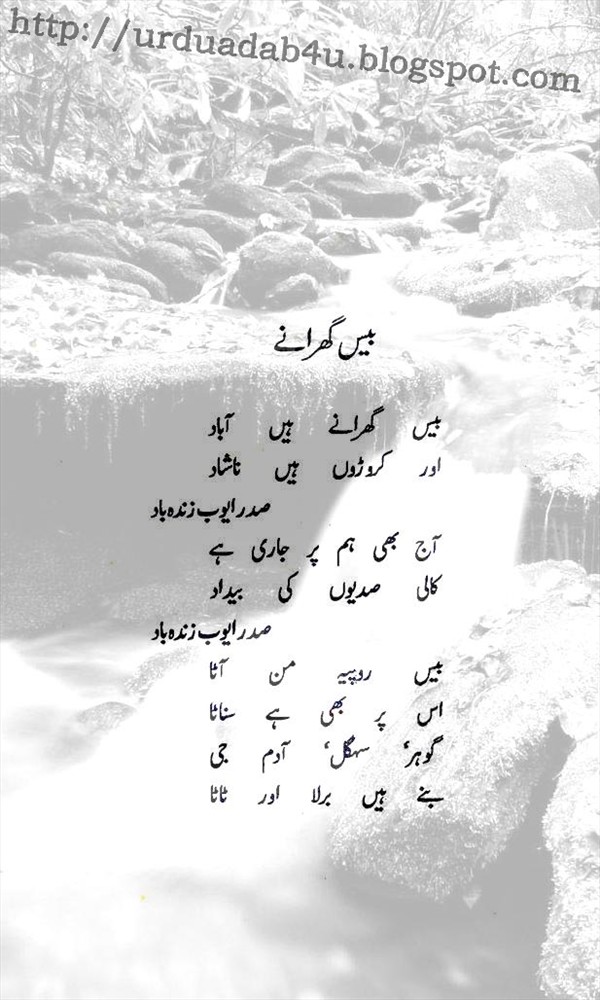 http://urduadab4u.blogspot.com
بیس گھرانے
بیس گھرانے ہیں آباد
اور کروڑوں ہیں ناشاد
صدر ایوب زندہ باد
آج بھی ہم پر جاری ہے
کالی صدیوں کی بیداد
صدر ایوب زندہ باد
بیس روپیہ من آٹا
اس پر بھی ہے سناٹا
گوہر، سہگل، آدم جی
بنے ہیں برلا اور ٹاٹا